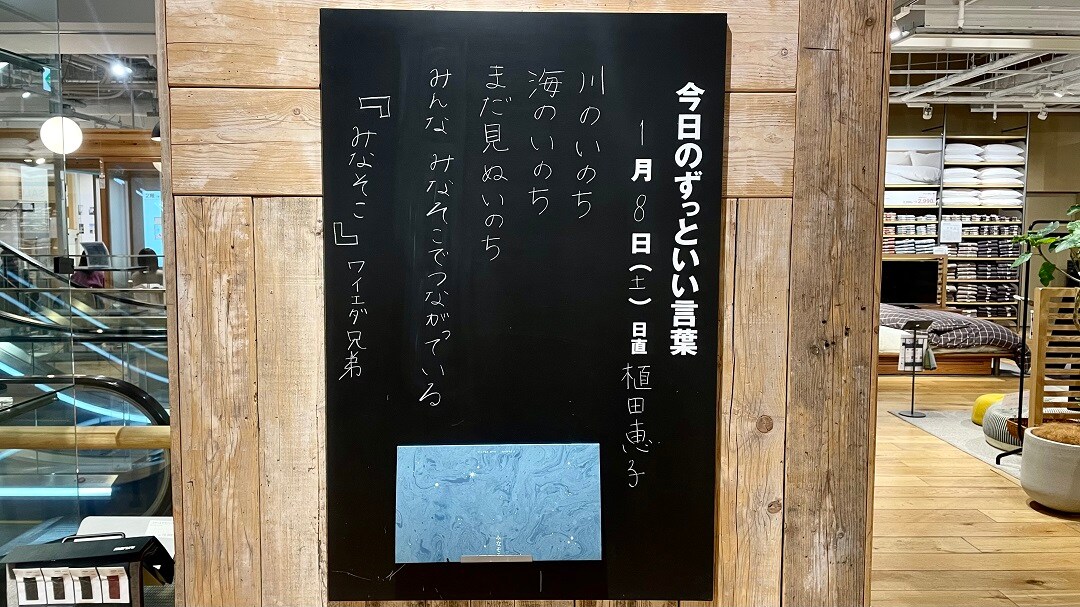 今日のずっといい言葉
1月8日(土) 日直 植田恵子
川のいのち
海のいのち
まだ見ぬいのち
みんな みなそこでつながっている
『みなそこ』 ワイエダ兄弟
みなそこ
2,990